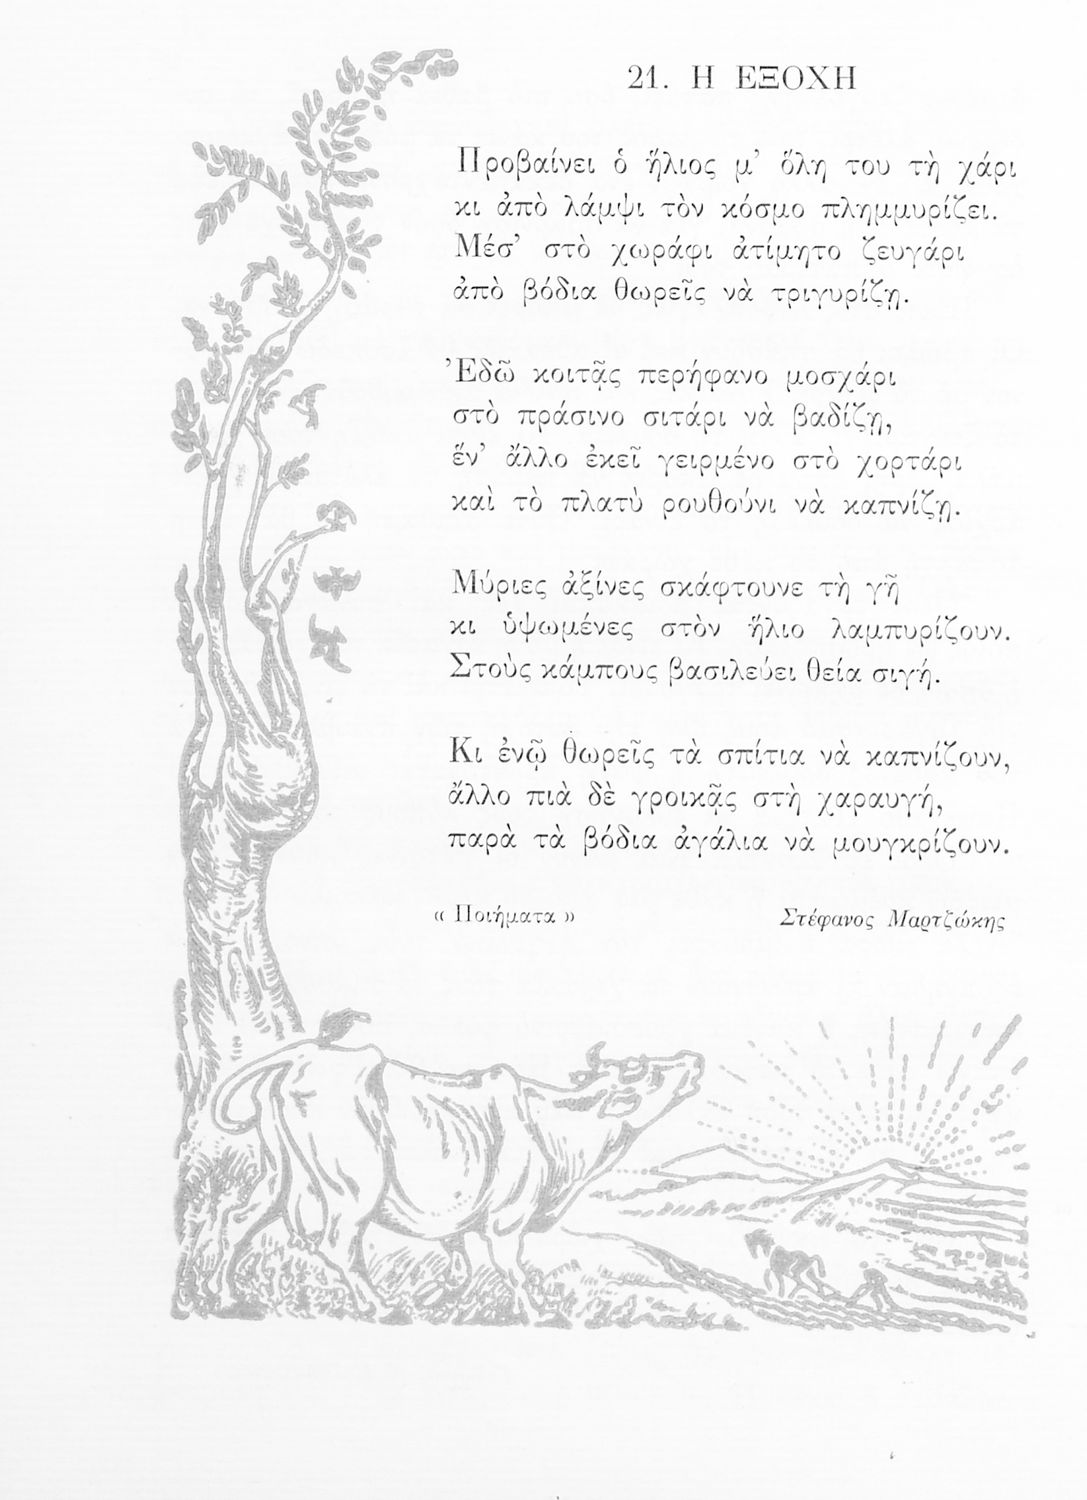 21. Η ΕΞΟΧΗ
Προβαίνει ὁ ἥλιος μ’ ὅλη του τὴ χάρι
κι ἀπὸ λάμψι τὸν κόσμο πλημμυρίζει.
Μέσ’ στὸ χωράφι ἀτίμητο ζευγάρι
ἀπὸ βόδια θωρεῖς νὰ τριγυρίζῃ.
Ἐδῶ κοιτᾷς περήφανο μοσχάρι
στὸ πράσινο σιτάρι νὰ βαδίζῃ,
ἕν’ ἄλλο ἐκεῖ γειρμένο στὸ χορτάρι
καὶ τὸ πλατὺ ρουθούνι νὰ καπνίζῃ.
Μύριες ἀξίνες σκάφτουνε τὴ γῆ
κι ὑψωμένες στὸν ἥλιο λαμπυρίζουν.
Στοὺς κάμπους βασιλεύει θεία σιγή.
Κι ἐνῷ θωρεῖς τὰ σπίτια νὰ καπνίζουν,
ἄλλο πιὰ δὲ γροικᾷς στὴ χαραυγή,
παρὰ τὰ βόδια ἀγάλια νὰ μουγκρίζουν.
« Ποιήματα » Στέφανος Μαρτζώκης